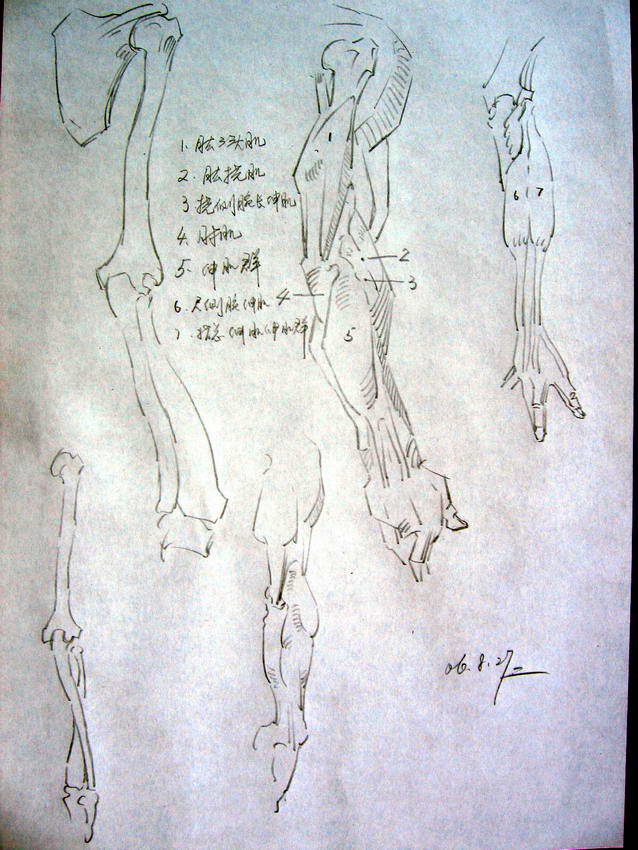 1. 肱三头肌
2. 肱挠肌
3. 挠侧腕长伸肌
4. 肘肌
5. 伸肌群
6. 尺侧腕伸肌
7. 指总伸肌伸肌群
1
2
3
4
5
6 7
06.8.27